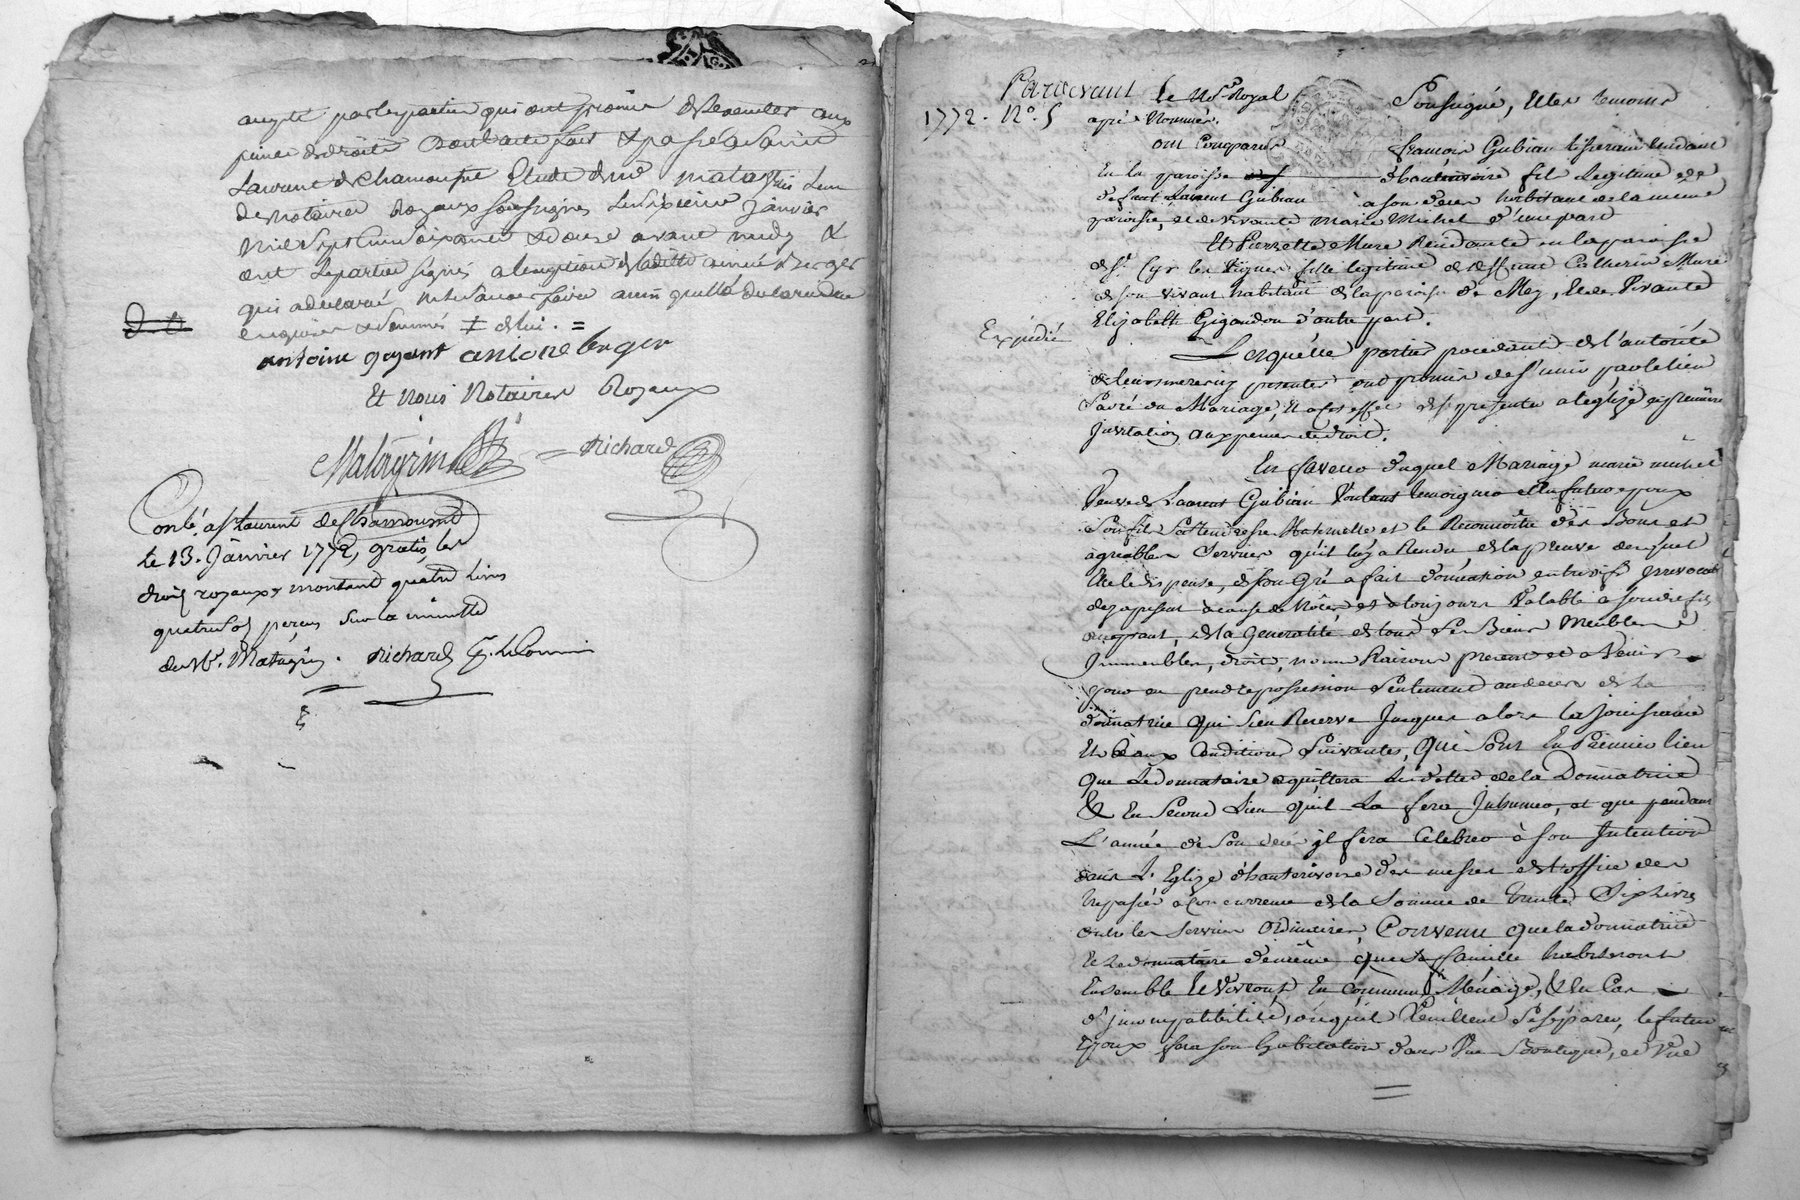 accepté par les parties qui ont promis d'executer aux
peines de droits Dont acte fait & passé a Saint
Laurent de Chamousset Etude de me matagrin L'un
des notaires Royaux soussignés le sixieme janvier
mil sept cent soixante et douze avant midy &
ont les parties signés a l'exception de laditte aimée Berger
qui a declaré ne le savoir faire ainsy que
enquise & sommés ‡ de lui . =
antoine goyent antoine berger
Et nous Notaires Royaux
Matagrin Richard
Conlé. a St Laurent de Chamousset
Le 13. Janvier 1772, gratis, les
droits royaux montant quatre Livres
quatre sols perçus sur la minutte
du Me. Matagrin. Richard
Pardevant Le No.re Royal Soussigné, et les temoins
1772. No. 5
après Nommés.
ont Comparus françois Gubian tisserand Residant
En la paroisse d'hauterivoire fils Legitime de
defunt Laurent Gubian a son deces habitant de la meme
paroisse, et de vivante marie Michel d'une part
Et Pierrette Mure Residante en la paroisse
de St. Cyr les Vignes fille legitime de deffunt Catherin Mure
de son vivant habitant de la paroisse de Meys, et de Vivante
Elizabeth Gigandon d'autre part.
Expédié
Lesquelles parties procedants de l'autorité
de leurs meres icy presentes ont promis de s'unir par le lien
Sacré du Mariage, et a cet effet de se presenter a l'eglise a premiere
Invitation aux peines de droit.
En faveur duquel Mariage marie michel
Veuve de Laurent Gubian Voulant temoigner au futur epoux
Son fils Sa tendresse Maternelle et le Reconnoitre des Bons et
agreables Services qu'il luy a Rendu de la preuve desquels
Elle le dispense, de son Gré a fait donnation entre vifs irrevocable
dez a present a cause de Nôces et a toujours Valable a sondit fils
acceptant, de la Generalité de tous ses Biens Meubles
Immeubles, droits, noms Raisons presents et a Venir
pour en prendre possession Seulement au deces de La
donnatrice qui s'en Reserve Jusques alors la jouissance
Et ce aux Conditions Suivantes, Qui Sont En Premier lieu
Que Le donnataire aquittera les dettes de la Donnatrice
& En Second Lieu qu'il La fera Inhumer, et que pendant
L'année de son deces il fera Celebrer à Son Intention
dans L'Eglise d'hauterivoire des messes et l'office des
trepassés a Concurrence de la Somme de trente Six Livres
outre les Services Ordinaires, Convenu que la donnatrice
et Le donnataire de meme que sa famille habiteront
Ensemble et Vivront En Commun Ménage, & En Cas
d'incompatibilité, ou qu'ils Veuillent Se séparer, le futur
Epoux fera son habitation dans Une Boutique, et Une